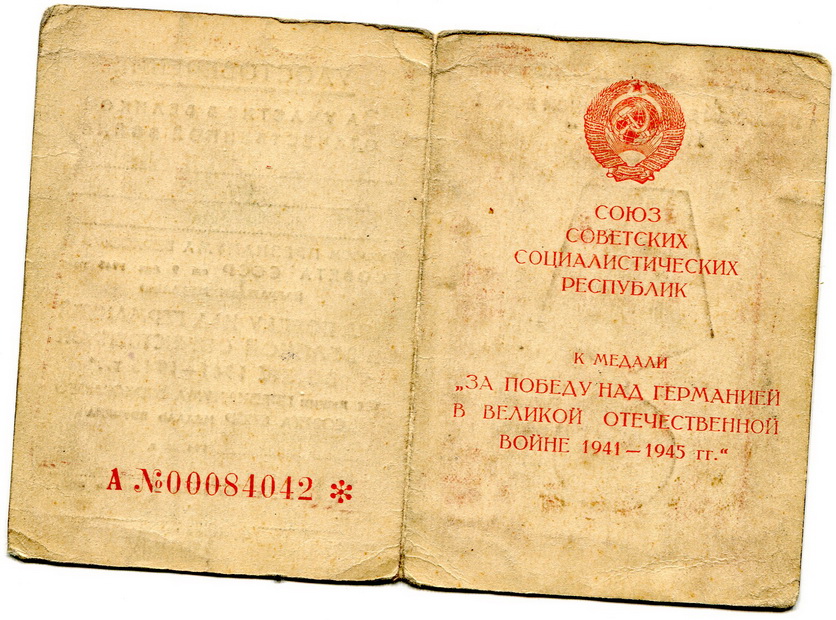 А №00084042 *
СОЮЗ
СОВЕТСКИХ
СОЦИАЛИСТИЧЕСКИХ
РЕСПУБЛИК
К МЕДАЛИ
„ЗА ПОБЕДУ НАД ГЕРМАНИЕЙ
В ВЕЛИКОЙ ОТЕЧЕСТВЕННОЙ
ВОЙНЕ 1941—1945 гг.“